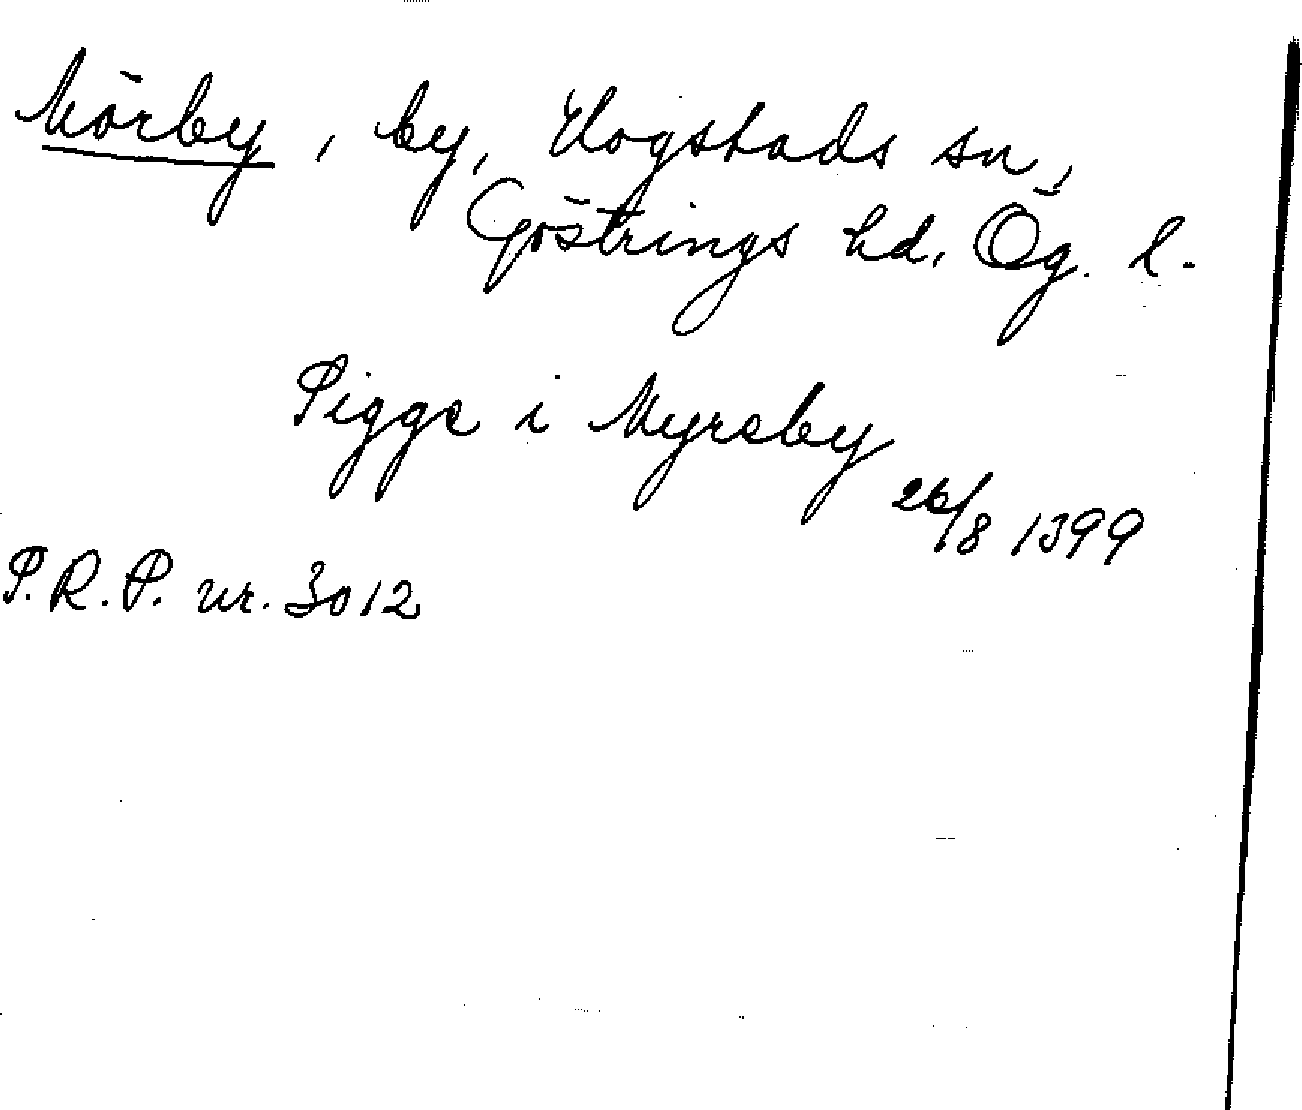 Mörby, by, Hogstads sn,
Göstrings hd, Ög. l.
Pigge i Myreby
26/8 1399
P.R.P. nr. 3012